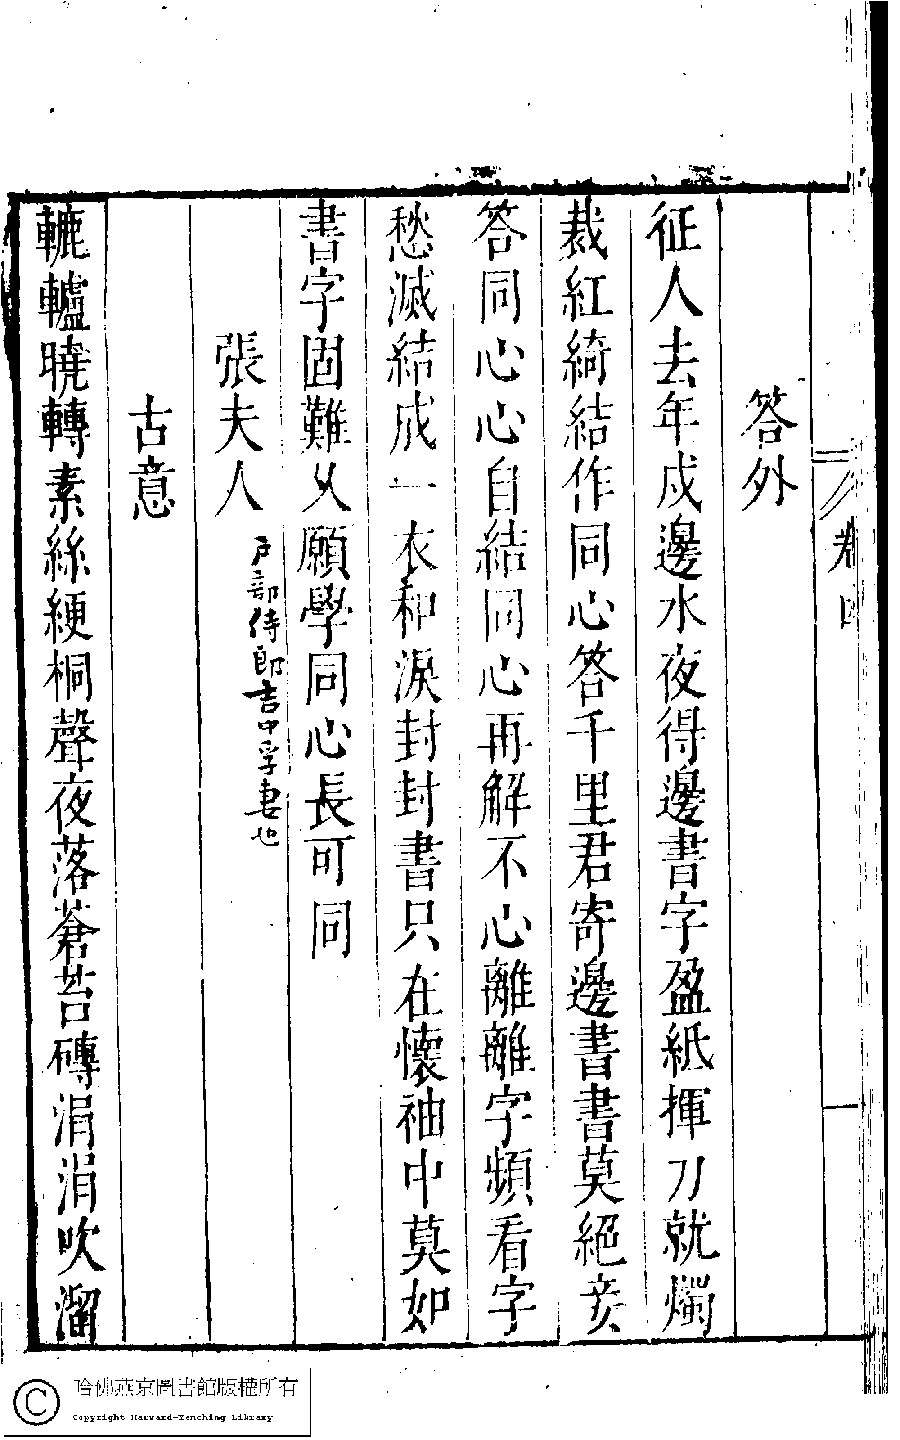 卷四
答外
征人去年戍邊水夜得邊書字盈紙揮刀就燭
裁紅綺結作同心答千里君寄邊書書莫絕妾
答同心心自結同心再解不心離離字頻看字
愁滅結成一衣和淚封封書只在懷袖中莫如
書字固難久願學同心長可同
張夫人
戶部侍郎吉中孚妻也
古意
轆轤曉轉素絲綆桐聲夜落蒼苔磚涓涓吹溜
哈佛燕京圖書館版權所有
Copyright Harvard-Yenching Library